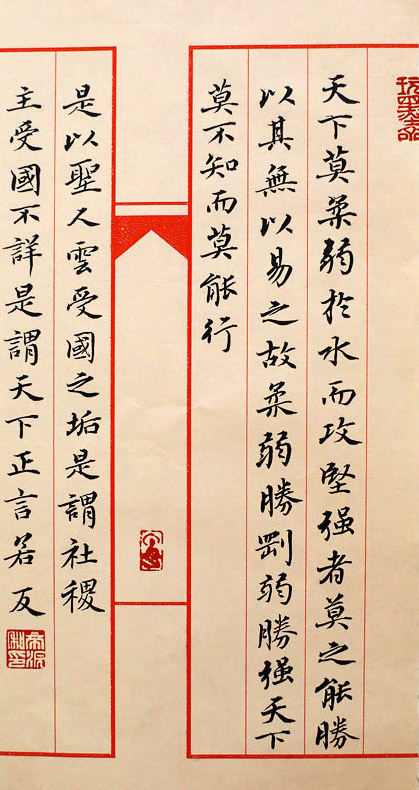 天下莫柔弱於水而攻堅强者莫之能勝
以其無以易之故柔弱勝剛弱勝强天下
莫不知而莫能行
是以聖人雲受國之垢是謂社稷
主受國不詳是謂天下正言若反